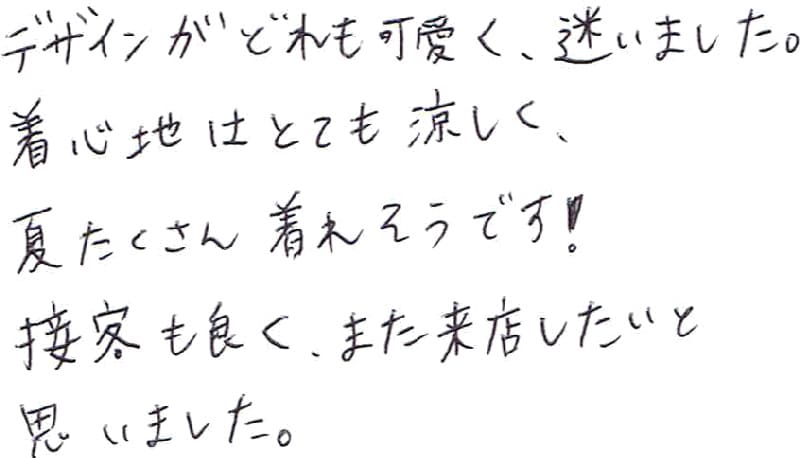 デザインがどれも可愛く、迷いました。
着心地はとても涼しく、
夏たくさん着れそうです!
接客も良く、また来店したいと
思いました。